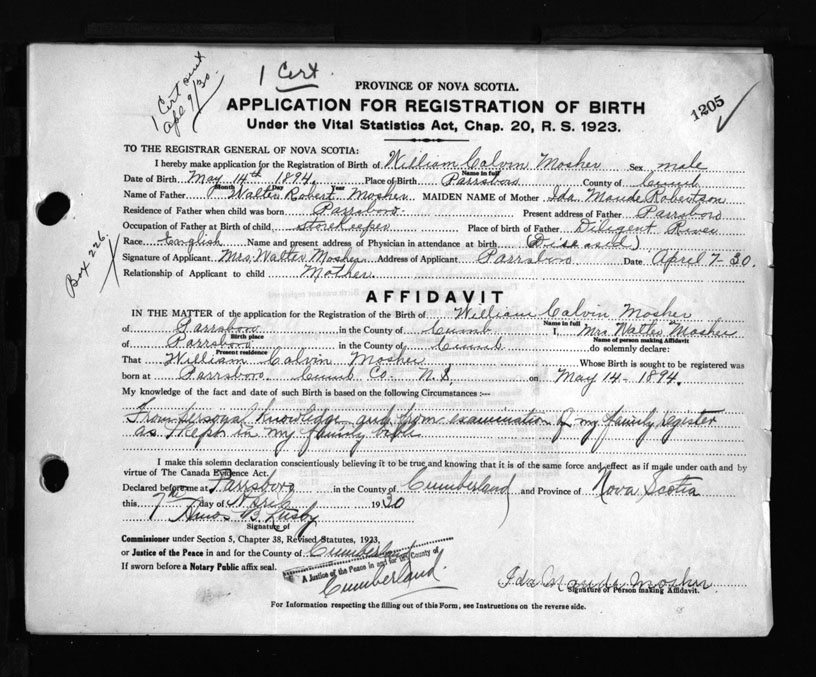 1 Cert
1 Cert sent
Apl 9/30.
PROVINCE OF NOVA SCOTIA.
1205
APPLICATION FOR REGISTRATION OF BIRTH
Under the Vital Statistics Act, Chap. 20, R. S. 1923.
TO THE REGISTRAR GENERAL OF NOVA SCOTIA:
I hereby make application for the Registration of Birth of William Calvin Mosher Sex male
Name in full
Date of Birth May 14th 1894. Place of Birth Parrsboro County of Cumb
Month Day Year
Name of Father Walter Robert Mosher MAIDEN NAME of Mother Ida Maude Robertson
Residence of Father when child was born Parrsboro Present address of Father Parrsboro
Occupation of Father at Birth of child Storekeeper Place of birth of Father Diligent River
Race English Name and present address of Physician in attendance at birth (Diseased)
Signature of Applicant Mrs. Walter Mosher Address of Applicant Parrsboro Date April 7-30.
Relationship of Applicant to child Mother.
Box 226.
AFFIDAVIT
IN THE MATTER of the application for the Registration of the Birth of William Calvin Mosher
Name in full
of Parrsboro in the County of Cumb I, Mrs Walter Mosher
Birth place Name of person making Affidavit
of Parrsboro in the County of Cumb do solemnly declare:
Present residence
That William Calvin Mosher Whose Birth is sought to be registered was
born at Parrsboro. Cumb Co. N.S, on May 14-1894.
My knowledge of the fact and date of such Birth is based on the following Circumstances :—
From personal knowledge and from examination of my family register
as kept in my family bible
I make this solemn declaration conscientiously believing it to be true and knowing that it is of the same force and effect as if made under oath and by
virtue of The Canada Evidence Act.
Declared before me at Parrsboro in the County of Cumberland and Province of Nova Scotia
this 7th day of April 1930
Amos B. Lusby
Signature of
Commissioner under Section 5, Chapter 38, Revised Statutes, 1923,
or Justice of the Peace in and for the County of Cumberland
A Justice of the Peace in and for the County of
If sworn before a Notary Public affix seal.
Cumberland.
Ida Maude Mosher
Signature of Person making Affidavit.
For Information respecting the filling out of this Form, see Instructions on the reverse side.